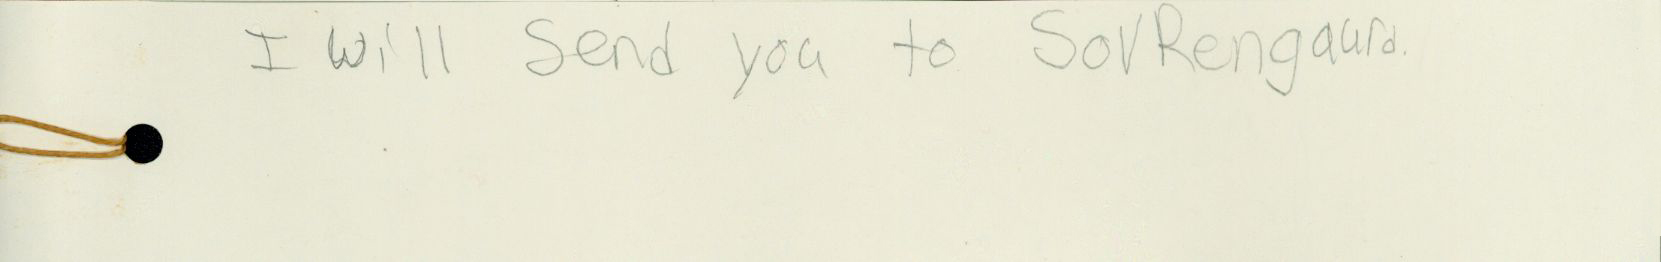 I will Send you to SovRengaurd.